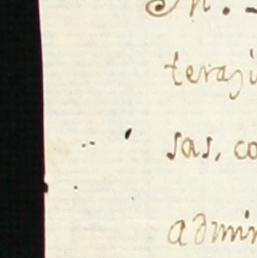 terazi
sas, co
admin